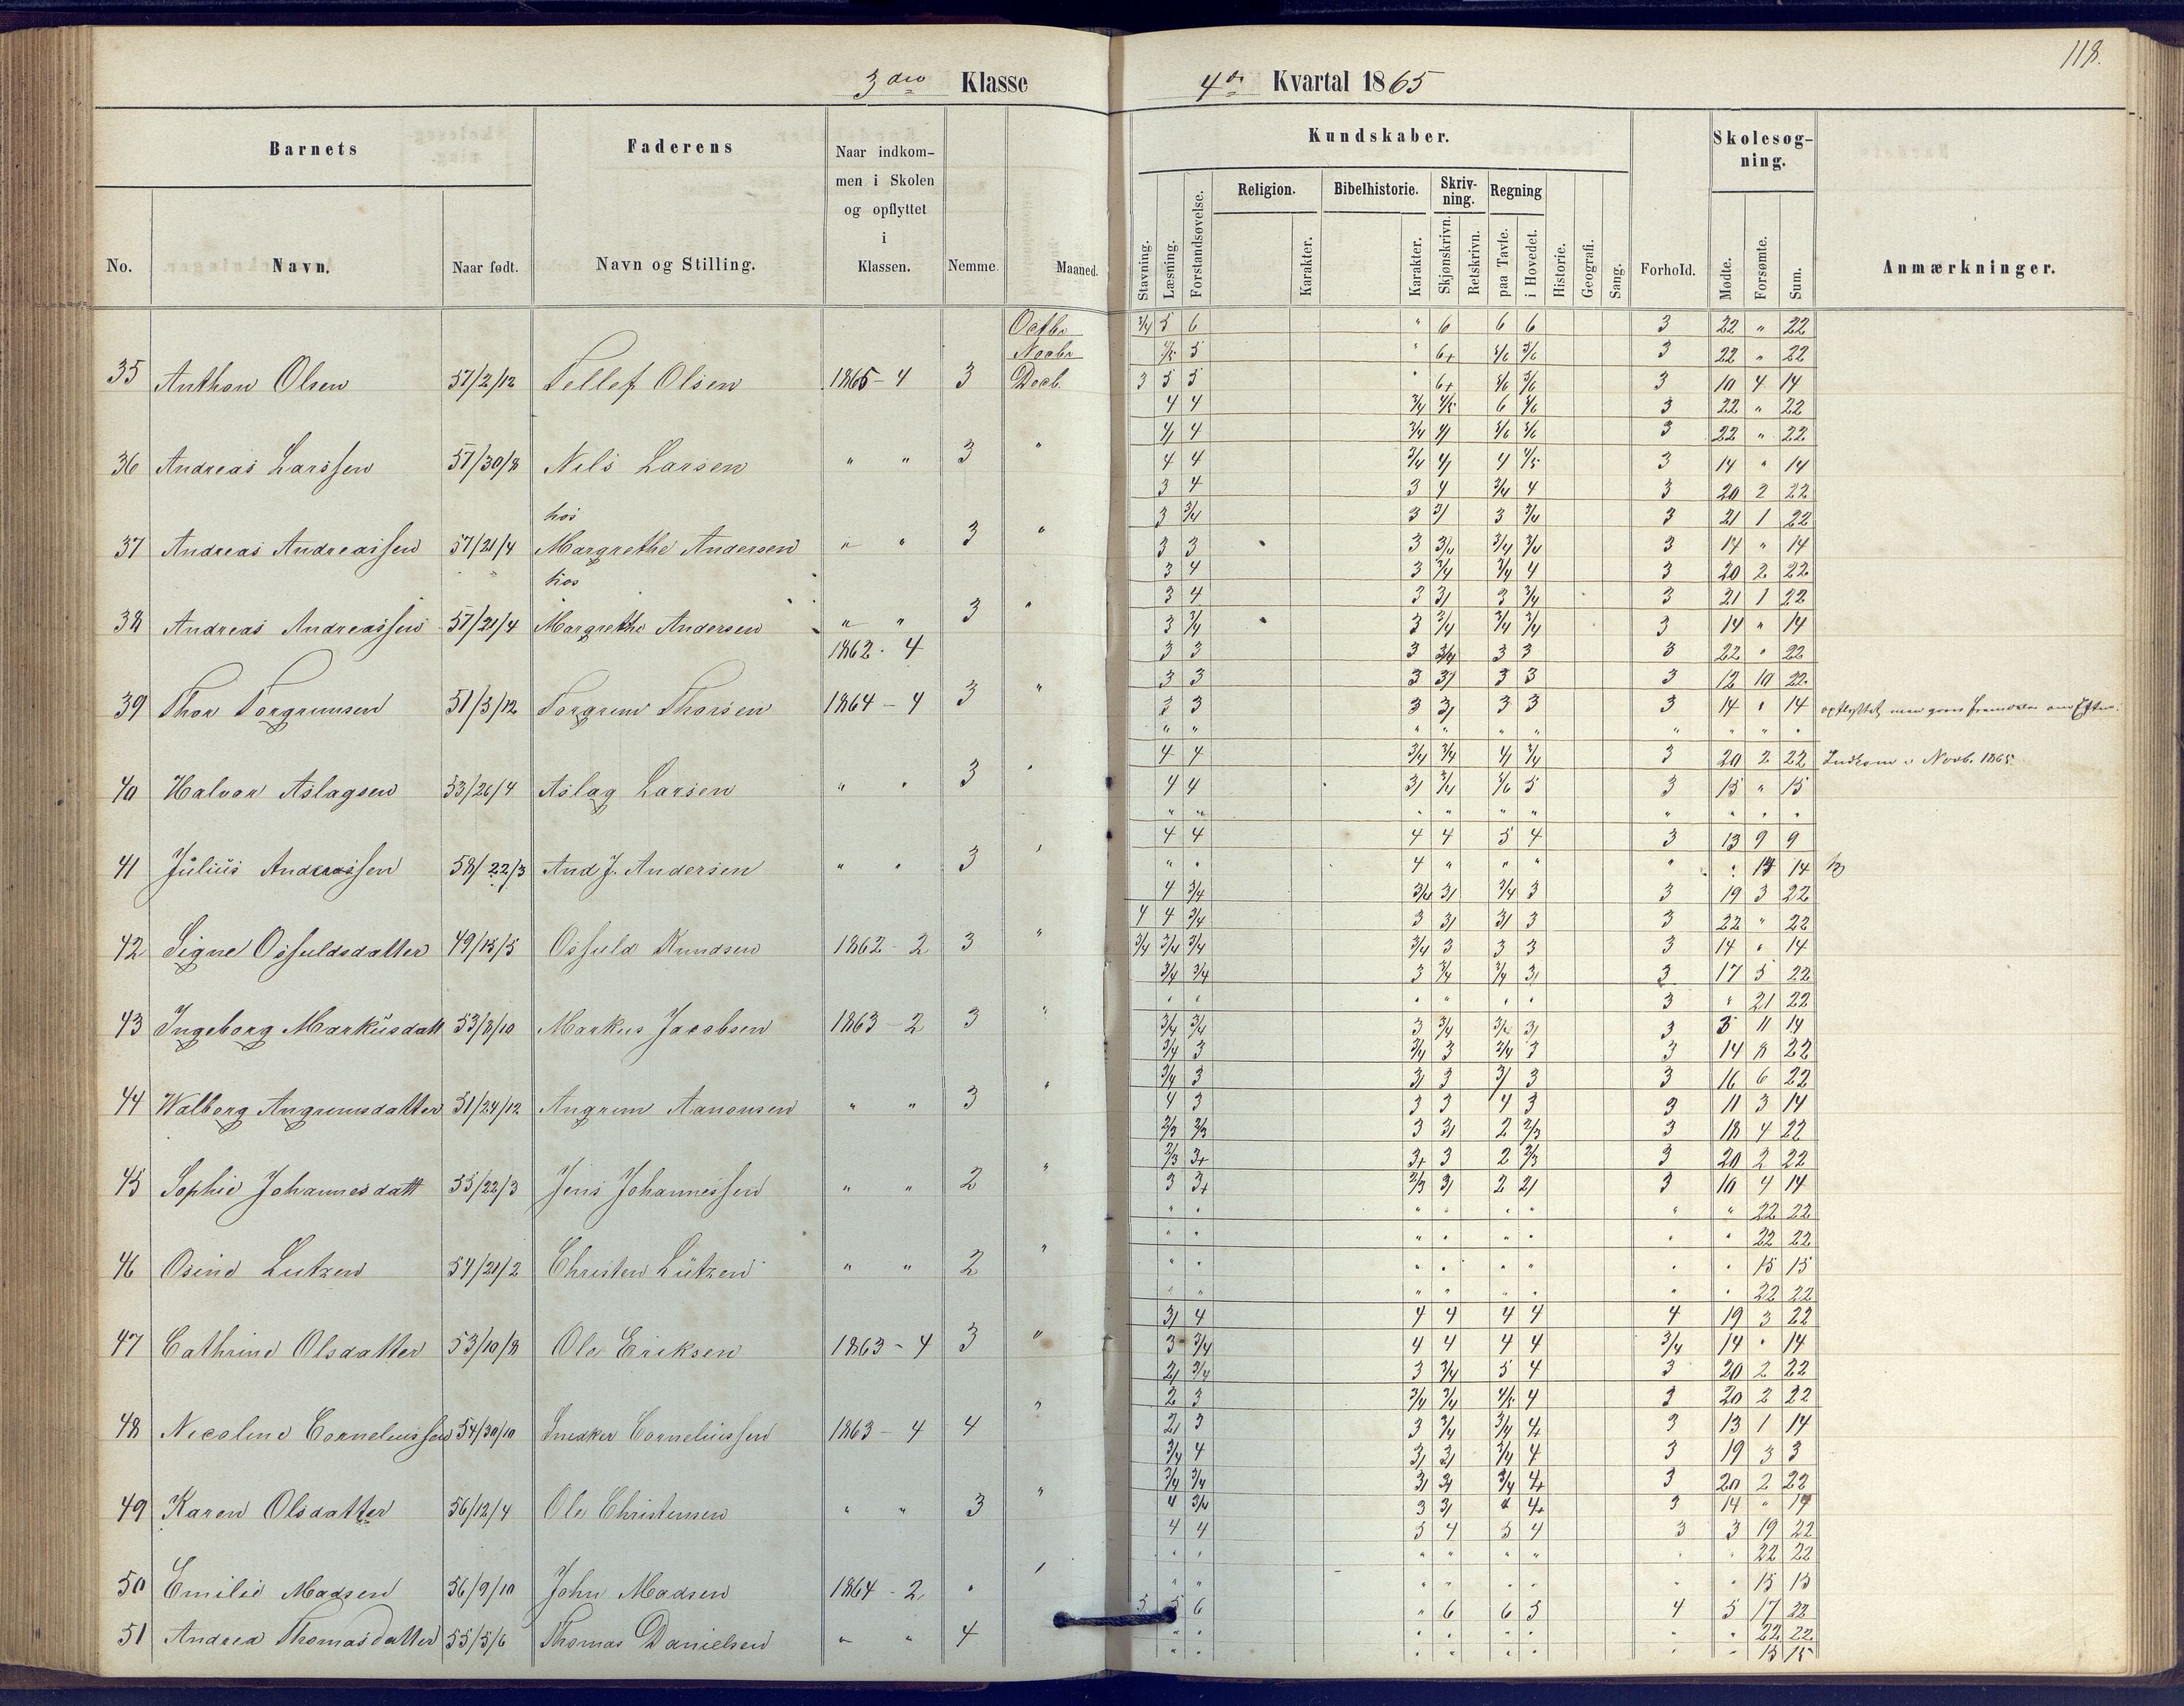 118.
3die Klasse 4de Kvartal 1865
Barnets Faderens Naar indkommen i Skolen og opflyttet i Klassen. Nemme. Maaned. Kundskaber. Forhold. Skolesøgning. Anmærkninger.
No. Navn. Naar født. Navn og Stilling. Stavning. Læsning. Forstandsøvelse. Religion. Karakter. Bibelhistorie. Karakter. Skrivning. Skjønskrivn. Retskrivn. Regning paa Tavle. i Hovedet. Historie. Geografi. Sang. Mødte. Forsømte. Sum.
Octbr 3/4 5 6 " 6 6 6 3 22 " 22
Novbr 4/5 5 " 6+ 5/6 5/6 3 22 " 22
35 Anthon Olsen 57/2/12 Tellef Olsen 1865-4 3 Decb. 3 5 5 " 6+ 5/6 5/6 3 10 4 14
4 4 3/4 4/5 6 5/6 3 22 " 22
4/ 4 3/4 4/ 5/6 5/6 3 22 " 22
36 Andreas Larssen 57/30/8 Nils Larsen " " 3 " 4 4 3/4 4/ 4 4/5 3 14 " 14
3 4 3 4 3/4 4 3 20 2 22
hos 3 3/4 3 3/ 3 3/4 3 21 1 22
37 Andreas Andreassen 57/21/4 Margrethe Andersen " " 3 " 3 3 3 3/4 3/4 3/4 3 14 " 14
hos 3 4 3 3/4 3/4 4 3 20 2 22
3 4 3 3/ 3 3/4 3 21 1 22
38 Andreas Andreassen 57/21/4 Margrethe Andersen " " 3 " 3 3/4 3 3/4 3/4 3/4 3 14 " 14
1862. 4 3 3 3 3/4 3 3 3 22 " 22
3 3 3 3/ 3 3 3 12 10 22
39 Thor Torgrimsen 51/3/12 Torgrim Thorsen 1864-4 3 " 3 3 3 3/ 3 3 3 14 " 14 opflyttet men
" " " " " " " " " "
4 4 3/4 3/4 4/ 3/4 3 20 2 22 Indkom i Novb. 1865
40 Halvor Aslagsen 53/26/4 Aslag Larsen " " 3 " 4 4 3/ 3/4 5/6 5 3 15 " 15
" " " " " " " " " "
4 4 4 4 5 4 3 13 9 9
41 Julius Andreassen 58/22/3 And J. Andersen " " 3 " " " 4 " " " " " 14 14
4 3/4 3/4 3/ 3/4 3 3 19 3 22
4 4 3/4 3 3/ 3/ 3 3 22 " 22
42 Signe Osfuldsdatter 49/15/5 Osfuld Knudsen 1862-2 3 " 3/4 3/4 3/4 3/4 3 3 3 3 14 " 14
3/4 3/4 3 3/4 3/4 3/ 3 17 5 22
" " " " " " 3 " 21 22
43 Ingeborg Markusdatt 53/8/10 Markus Jacobsen 1863-2 3 " 3/4 3/4 3 3/4 3/4 3/ 3 3 11 14
3/4 3 3/4 3 3/4 3 3 14 8 22
3/4 3 3/ 3 3/ 3 3 16 6 22
44 Walborg Angrimsdatter 51/24/12 Angrim Aanonsen " " 3 " 4 3 3 3 4 3 3 11 3 14
2/3 2/3 3 3/ 2 2/3 3 18 4 22
2/3 3+ 3+ 3 2 2/3 3 20 2 22
45 Sophie Johannesdatt 55/22/3 Jens Johannessen " " 2 " 3 3+ 2/3 3/ 2 2/ 3 10 4 14
" " " " " " " " 22 22
" " " " " " " " 22 22
46 Osine Lutzen 54/21/2 Christen Lützen " " 2 " " " " " " " " " 15 15
" " " " " " " " 22 22
3/ 4 4 4 4 4 4 19 3 22
47 Cathrine Olsdatter 53/10/8 Ole Eriksen 1863-4 3 " 3 3/4 4 4 4 4 3/4 14 " 14
2/ 3/4 3 3/4 5 4 3 20 2 22
2 3 3/4 3/4 4/5 4 3 20 2 22
48 Nicoline Corneliussen 54/30/10 Snedker Corneliussen 1863-4 4 " 2/ 3 3 3/4 3/4 4 3 13 1 14
3/4 4 3/ 3/ 3/4 4 3 19 3 3
3/4 3/4 3/ 3/ 3/4 4+ 3 20 2 22
49 Karen Olsdatter 56/12/4 Ole Christensen " " 3 " 4 3/4 3 3/ 4 4+ 3 14 " 14
4 4 5 4 5 4 3 3 19 22
" " " " " " " " 22 22
50 Emilie Madsen 56/9/10 John Madsen 1864-2 " " " " " " " " " " 15 15
5 5 6 " 6 6 5 4 5 17 22
51 Andrea Thomasdatter 55/5/6 Thomas Danielsen " " 4 " " " " " " " " 22 22
" " " " " " " " 15 15